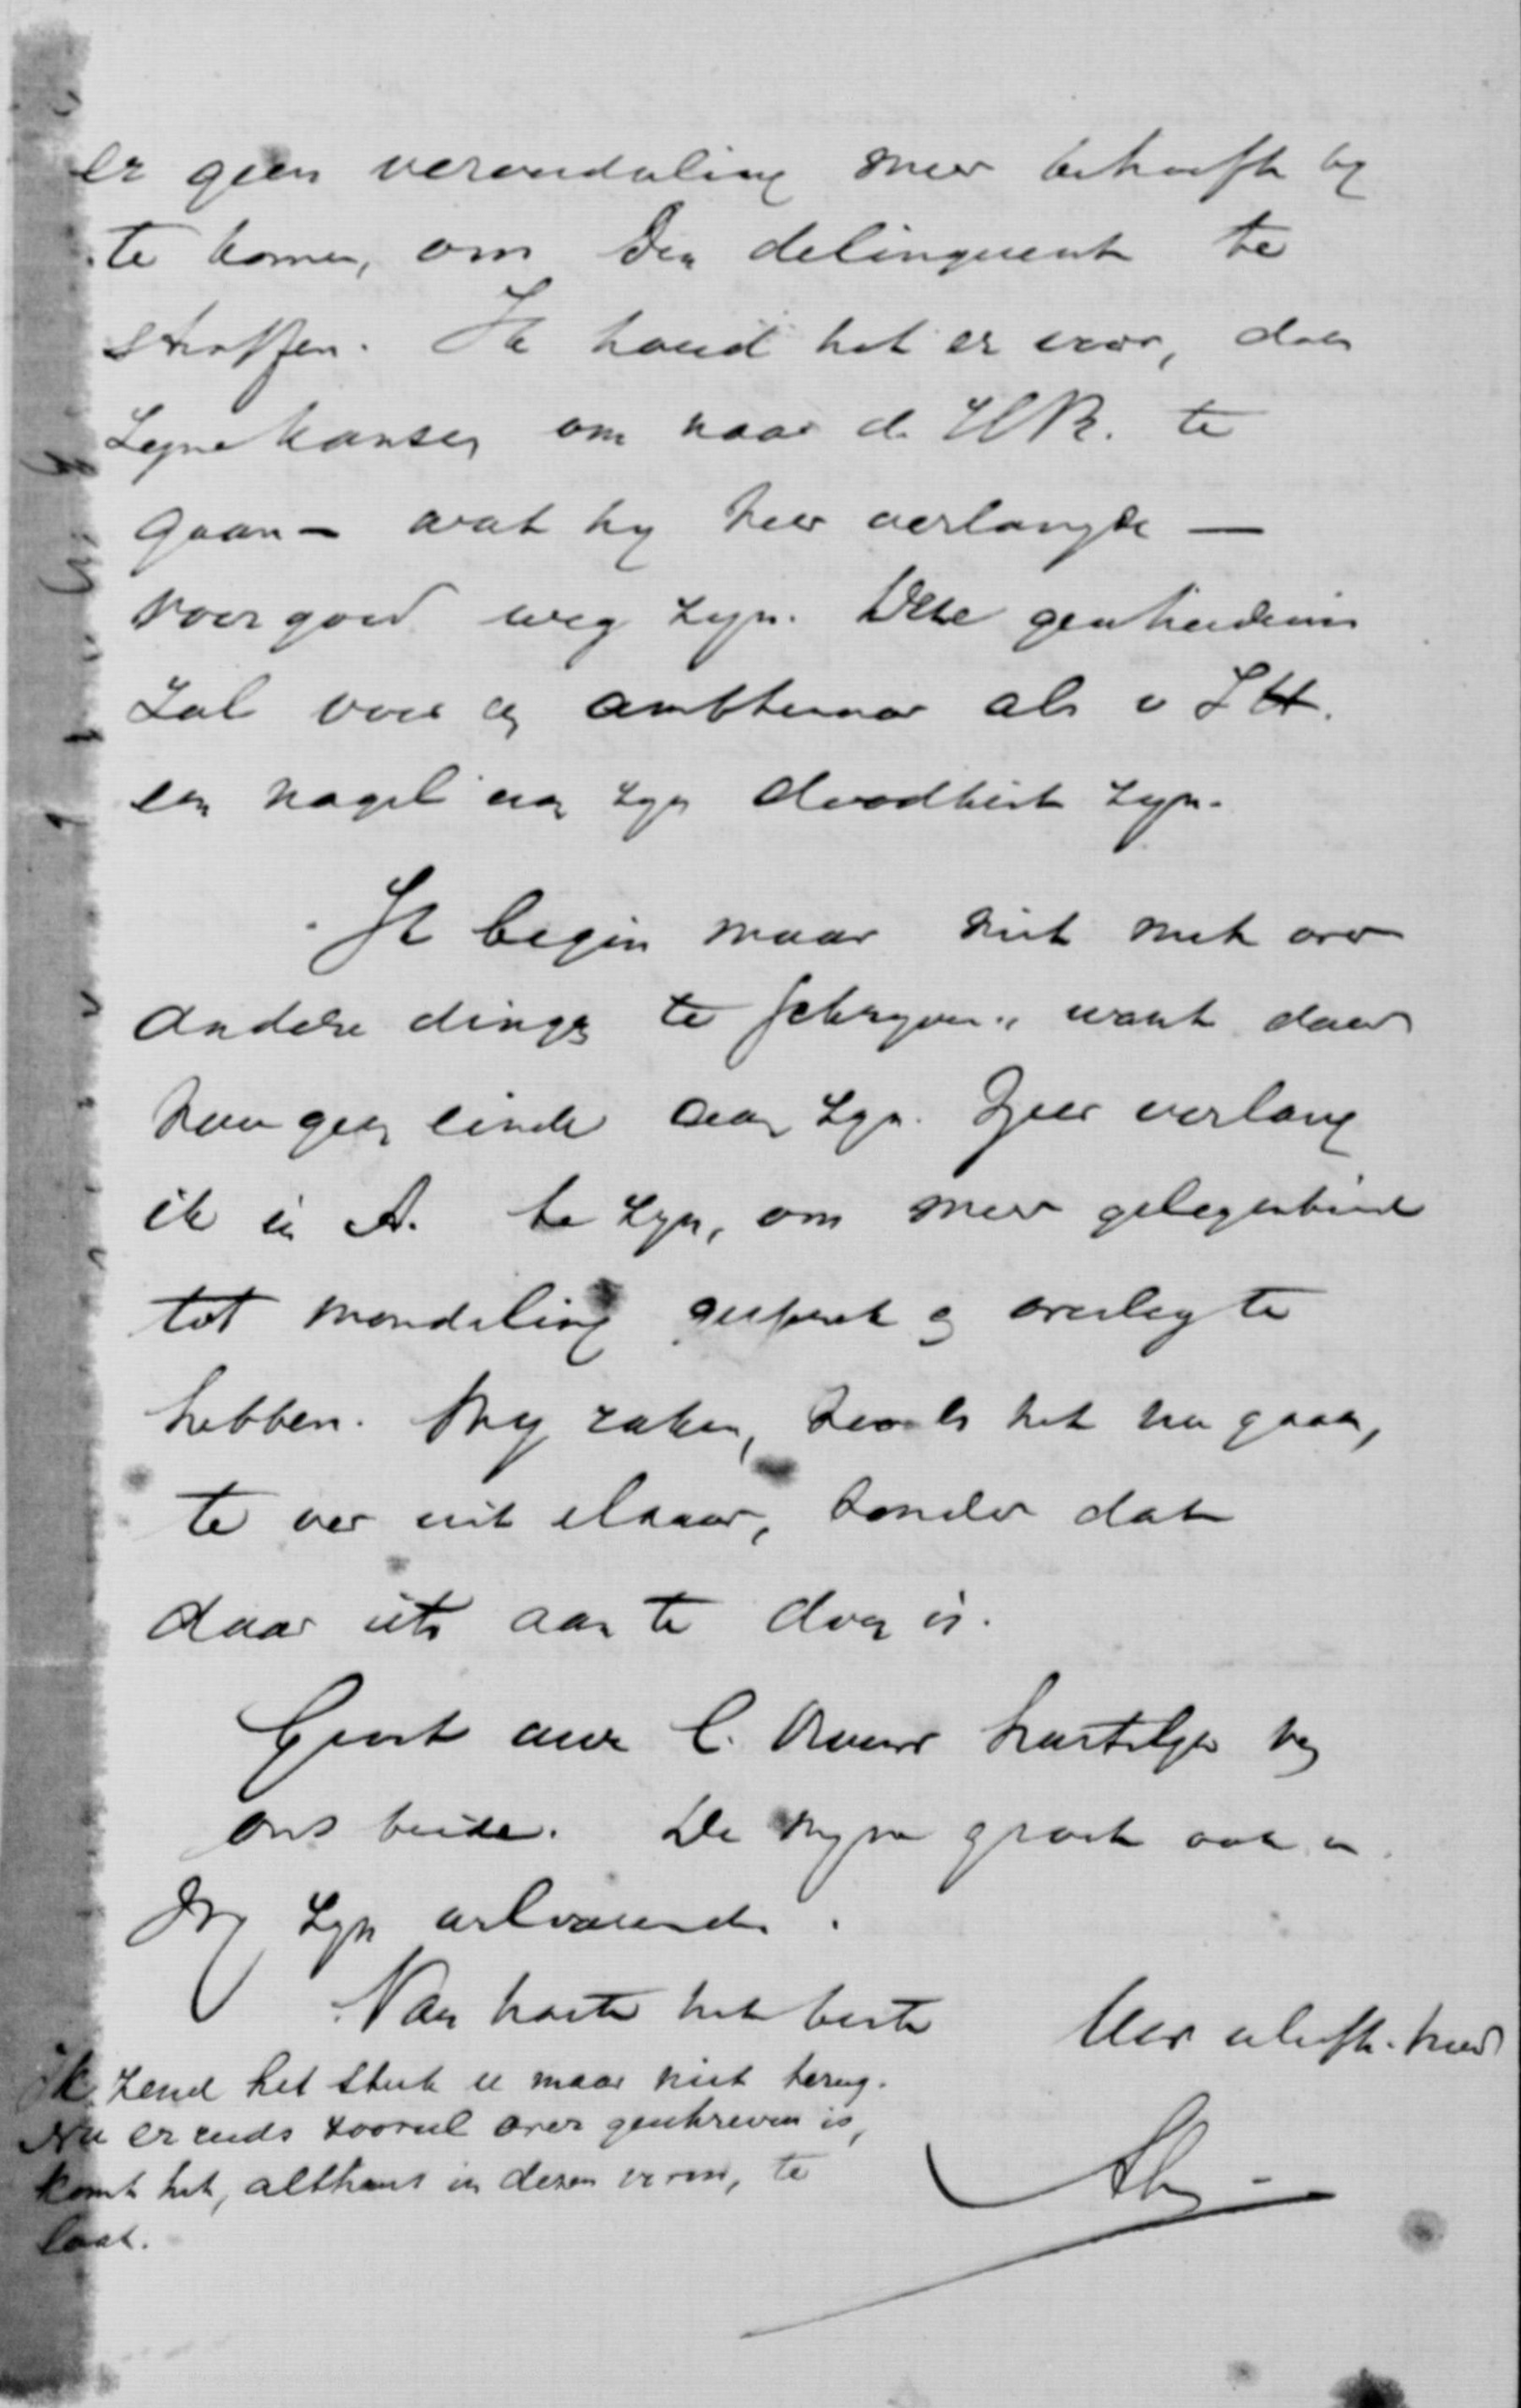 er geen veroordeling meer behoefte bij
te komen, om den delinquent te
straffen. Ik houd het er voor, dat
zijne kansen om naar de H.R. te
gaan – wat hij zeer verlangde –
voorgoed weg zijn. Deze geschiedenis
zal voor een ambtenaar als v L H.
een nagel aan zijn doodkist zijn.
Ik begin maar niet met over
andere dingen te schrijven, want daar
zou geen einde aan zijn. Zeer verlang
ik in A. te zijn, om meer gelegenheid
tot mondeling gesprek en overleg te
hebben. Wij raken, zooals het nu gaat,
te ver uit elkaar, zonder dat
daar iets aan te doen is.
Groet uwe l. vrouw hartelijk van
ons beide. De mijne groet ook u.
Wij zijn
Van harte het beste
Uw
Ik zend het stuk u maar niet terug.
Nu er reeds zooveel over geschreven is,
komt het, althans in dezen vorm, te
laat.